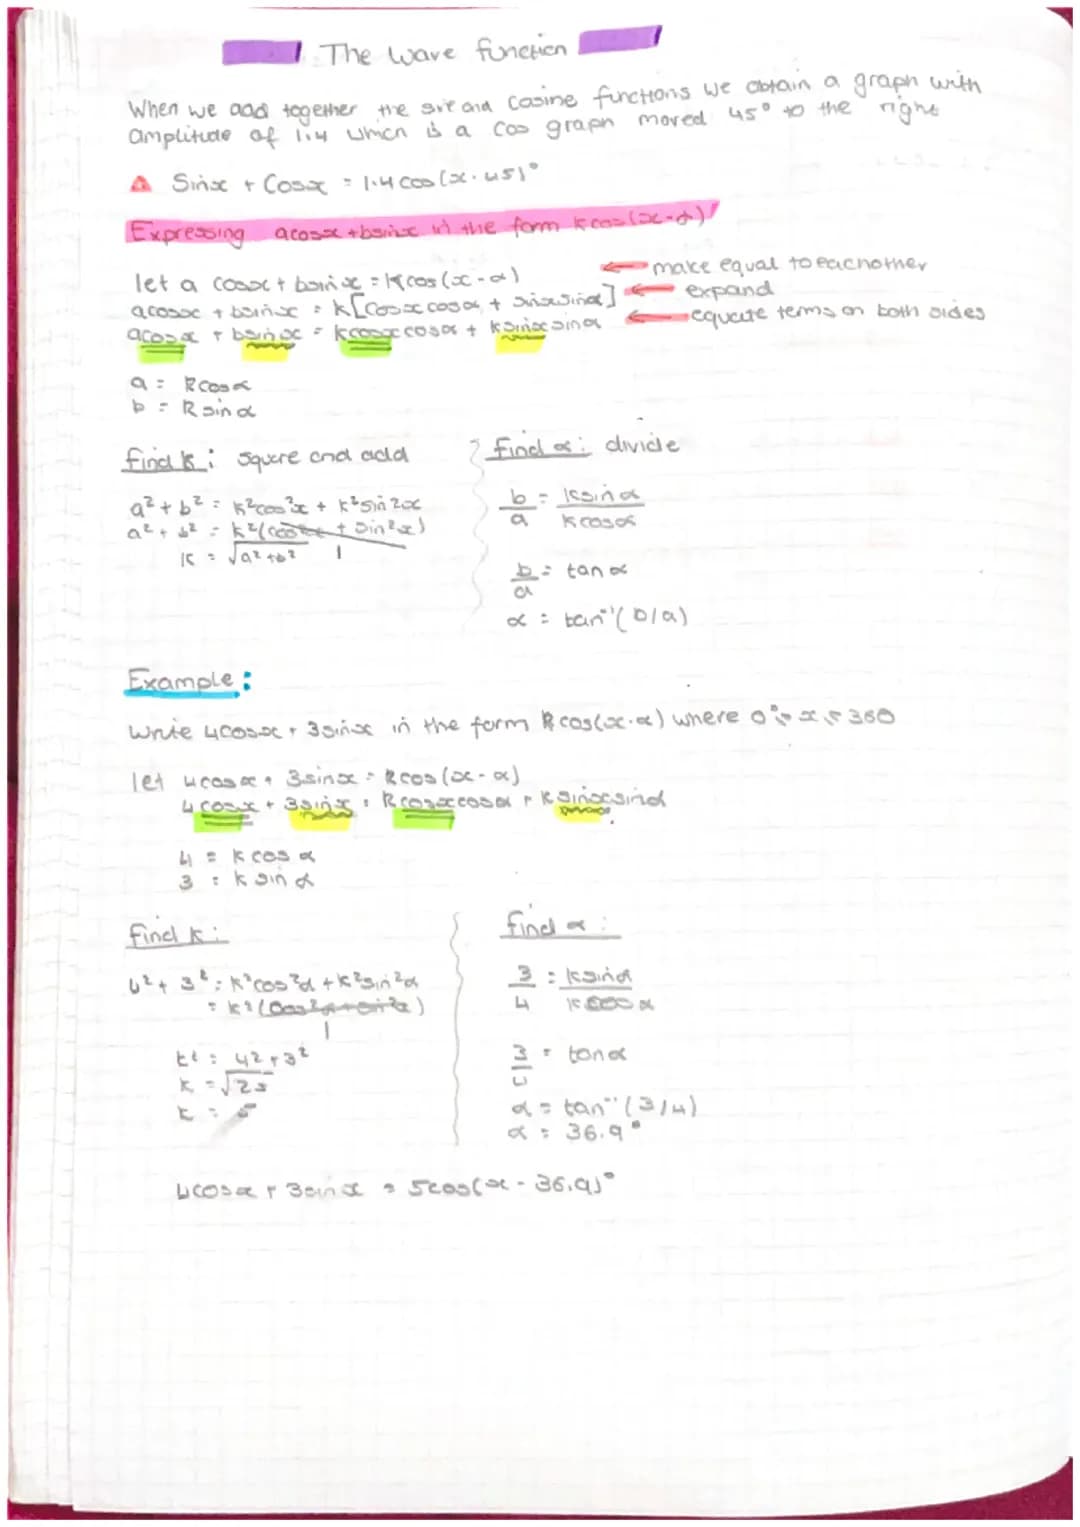 The wave function
When we add together the sine and cosine functions we obtain a graph with
amplitude of 1.4 which is a cos graph moved 45° to the right
Sinx + Cosx = 1.4 cos(x-45)°
Expressing acosx + bsinx in the form kcos(x-α)
let a cosx + bsinx = Kcos(x-α)
make equal to eachother
acosx + bsinx = k[cosxcosα + sinxsinα]
expand
acosx + bsinx = kcosxcosα + ksinxsinα
equate terms on both sides
a = kcosα
b = ksinα
find k: square and add
a² + b² = k²cos²x + k²sin2x
a² + b² = k²(cos²x + sin²x)
1
k = √a²+b²
find α: divide
b/a = ksinα/kcosα
b/a = tanα
α = tan⁻¹(b/a)
Example:
Write 4cosx + 3sinx in the form kcos(x-α) where 0°≤x≤360
let 4cosx + 3sinx = kcos(x-α)
4cosx + 3sinx = kcosxcosα + ksinxsinα
4 = kcosα
3 = ksinα
find k:
4² + 3² = k²cos²α + k²sin²α
= k²(cos²α + sin²α)
1
k² = 4²+3²
k = √25
k = 5
find α:
3/4 = ksinα/kcosα
3/4 = tanα
α = tan⁻¹(3/4)
α = 36.9°
4cosx + 3sinx = 5cos(x - 36.9)°